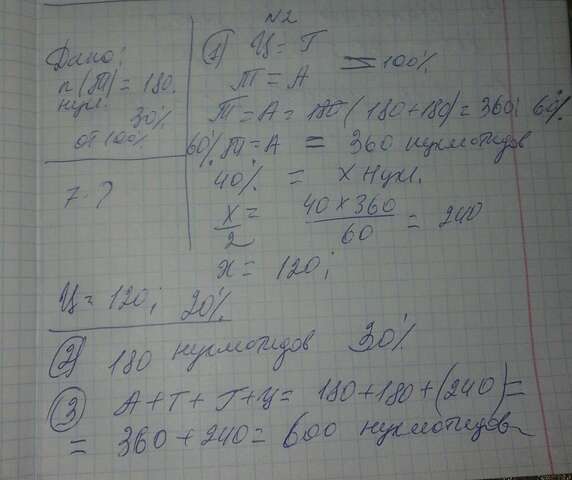 №2
Дано:
n(Т) = 180.
нукл.
30%
от 100%
7-?
① Ц = Г
Т = А = 100%
Т = А = 180 (180+180) = 360; 60%
60% Т = А = 360 нуклотидов
40% = х нукл.
х/2 = 40 х 360 / 60 = 240
х = 120;
Ц = 120; 20%
② 180 нуклотидов 30%
③ А + Т + Г + Ц = 180 + 180 + (240) =
= 360 + 240 = 600 нуклотидов